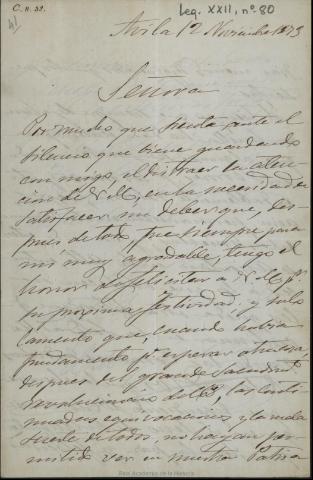 C. n. 52.
Leg. XXII, nº 80
41
Avila 12 Noviembre 1873
Señora
Por mucho que sienta ante el
silencio que viene guardando
conmigo, el distraer la aten-
cion de V. M., en la necesidad de
satisfacer un deber que, des-
pues de todo, fue siempre para
mi muy agradable, tengo el
honor de felicitar a V. M. pr
su proxima festividad, y solo
lamento que, cuando habia
fundamento pa esperar otra cosa,
despues del grande sacudimto
revolucionario del 68, las conti-
nuadas equivocaciones y la mala
suerte de todos, no hayan per-
mitido ver en nuestra Patria
Real Academia de la Historia